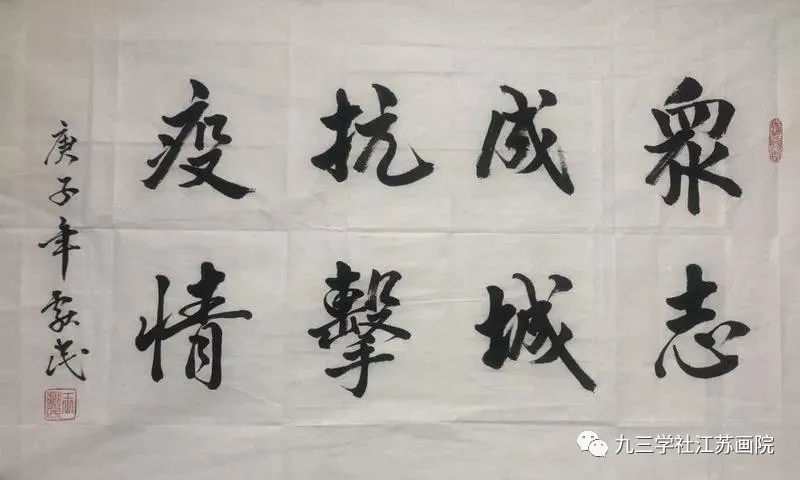 眾志
成城
抗擊
疫情
庚子年
九三学社江苏画院